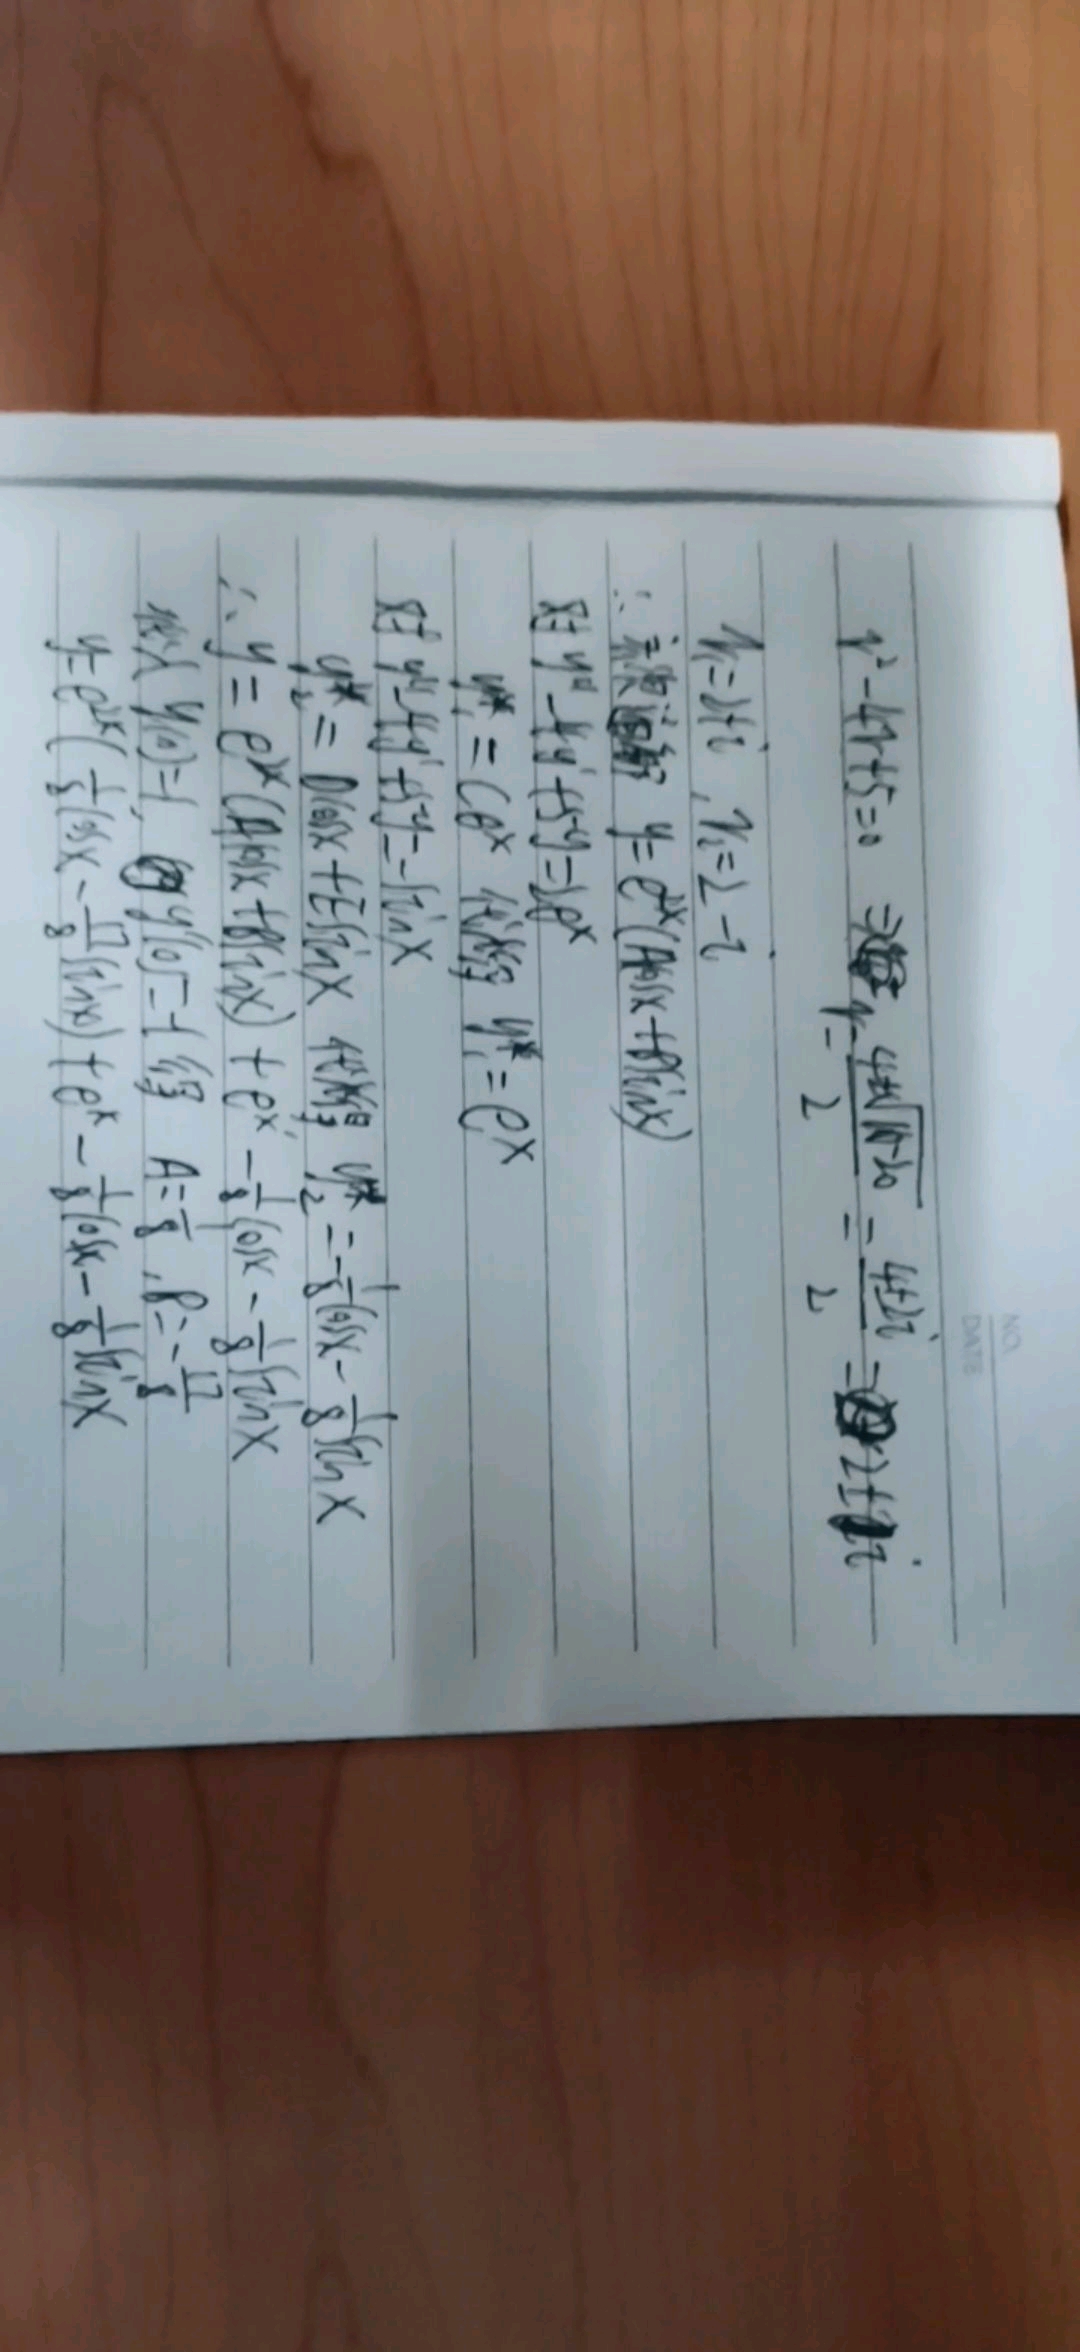 NO.
DATE
r²-4r+5=0 ⇒ r=(4±√(16-20))/2 = (4±2i)/2 = 2±i
r₁=2+i, r₂=2-i
∴ 齐次通解 y=e²ˣ(Acosx+Bsinx)
对 y''-4y'+5y=2eˣ
y₁*=Ceˣ 代入得 y₁*=eˣ
对 y''-4y'+5y=-sinx
y₂*=Dcosx+Esinx 代入得 y₂*=-1/8cosx-1/8sinx
∴ y=e²ˣ(Acosx+Bsinx)+eˣ-1/8cosx-1/8sinx
代入 y(0)=1, y'(0)=-1 得 A=1/8, B=-17/8
y=e²ˣ(1/8cosx-17/8sinx)+eˣ-1/8cosx-1/8sinx